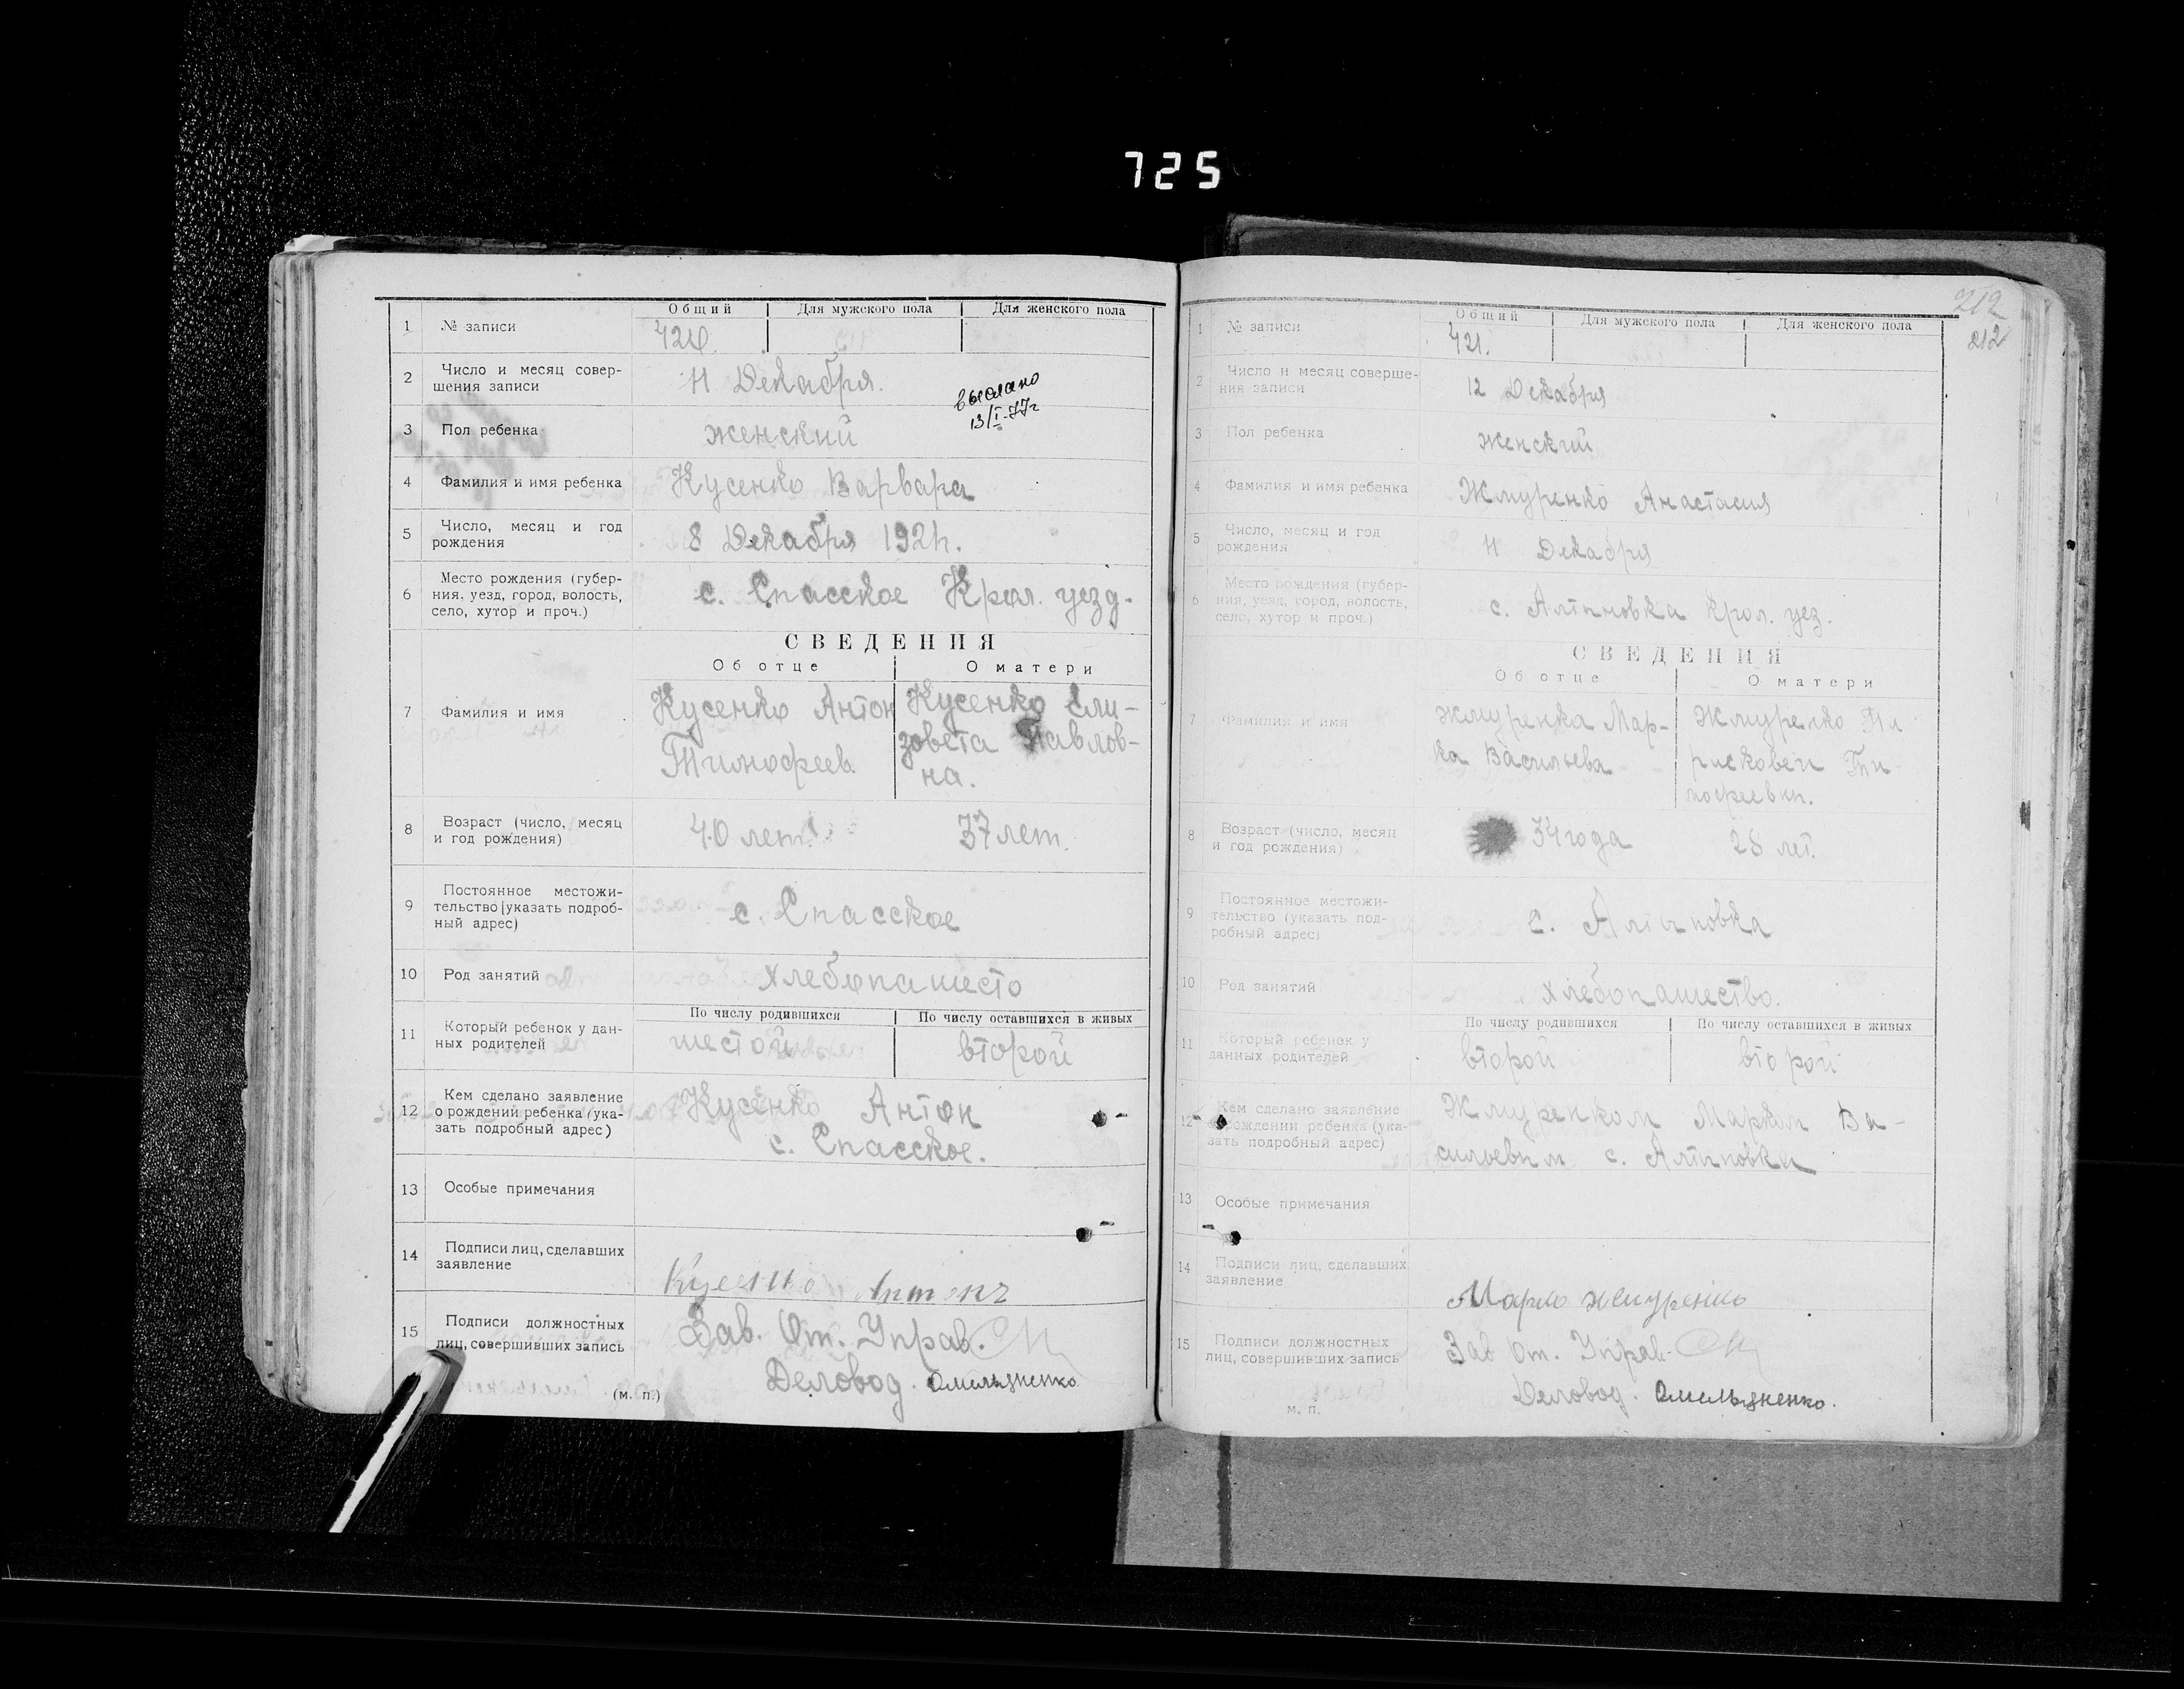 725
Общий Для мужского пола Для женского пола
1 № записи 420.
2 Число и месяц совер-
шения записи 11 Декабря.
выслано
13/I-77г
3 Пол ребенка женский
4 Фамилия и имя ребенка Кусенко Варвара
5 Число, месяц и год
рождения 8 Декабря 192
6 Место рождения (губер-
ния, уезд, город, волость,
село, хутор и проч.) с. Спасское Крол. уезд.
СВЕДЕНИЯ
Об отце О матери
7 Фамилия и имя
Кусенко Антон
Тимофеев.
Кусенко Ели-
зовета Павлов-
на.
8 Возраст (число, месяц
и год рождения) 40 лет. 37 лет.
9 Постоянное местожи-
тельство (указать подроб-
ный адрес) с. Спасское
10 Род занятий хлебопашесто
По числу родившихся По числу оставшихся в живых
11 Который ребенок у дан-
ных родителей шестой второй
12 Кем сделано заявление
о рождении ребенка (ука-
зать подробный адрес)
Кусенко Антон
с. Спасское.
13 Особые примечания
14 Подписи лиц, сделавших
заявление
Кусенко Антонъ
15 Подписи должностных
лиц, совершивших запись
Зав. От. Управ.
Деловод. Омельяненко
(м. п.)
212
212
Общий Для мужского пола Для женского пола
1 № записи 421.
2 Число и месяц соверше-
ния записи 12 Декабря
3 Пол ребенка женский
4 Фамилия и имя ребенка Жмуренко Анастасия
5 Число, месяц и год
рождения 11 Декабря
6 Место рождения (губер-
ния, уезд, город, волость,
село, хутор и проч.) с. Алтиновка Крол. уез.
СВЕДЕНИЯ
Об отце О матери
7 Фамилия и имя
Жмуренка Мар-
ка Васильева
Жмуренко
8 Возраст (число, месяц
и год рождения) 34 года 28 лет.
9 Постоянное местожи-
тельство (указать под-
робный адрес) с. Алтиновка
10 Род занятий хлебопашество.
По числу родившихся По числу оставшихся в живых
11 Который ребенок у
данных родителей второй второй
12 Кем сделано заявление
о рождении ребенка (ука-
зать подробный адрес)
Жмуренком Марком Ва-
сильевим с. Алтиновка
13 Особые примечания
14 Подписи лиц, сделавших
заявление
Марко Жмуренко
15 Подписи должностных
лиц, совершивших запись
Зав От. Управ.
Деловод. Омельяненко.
м. п.